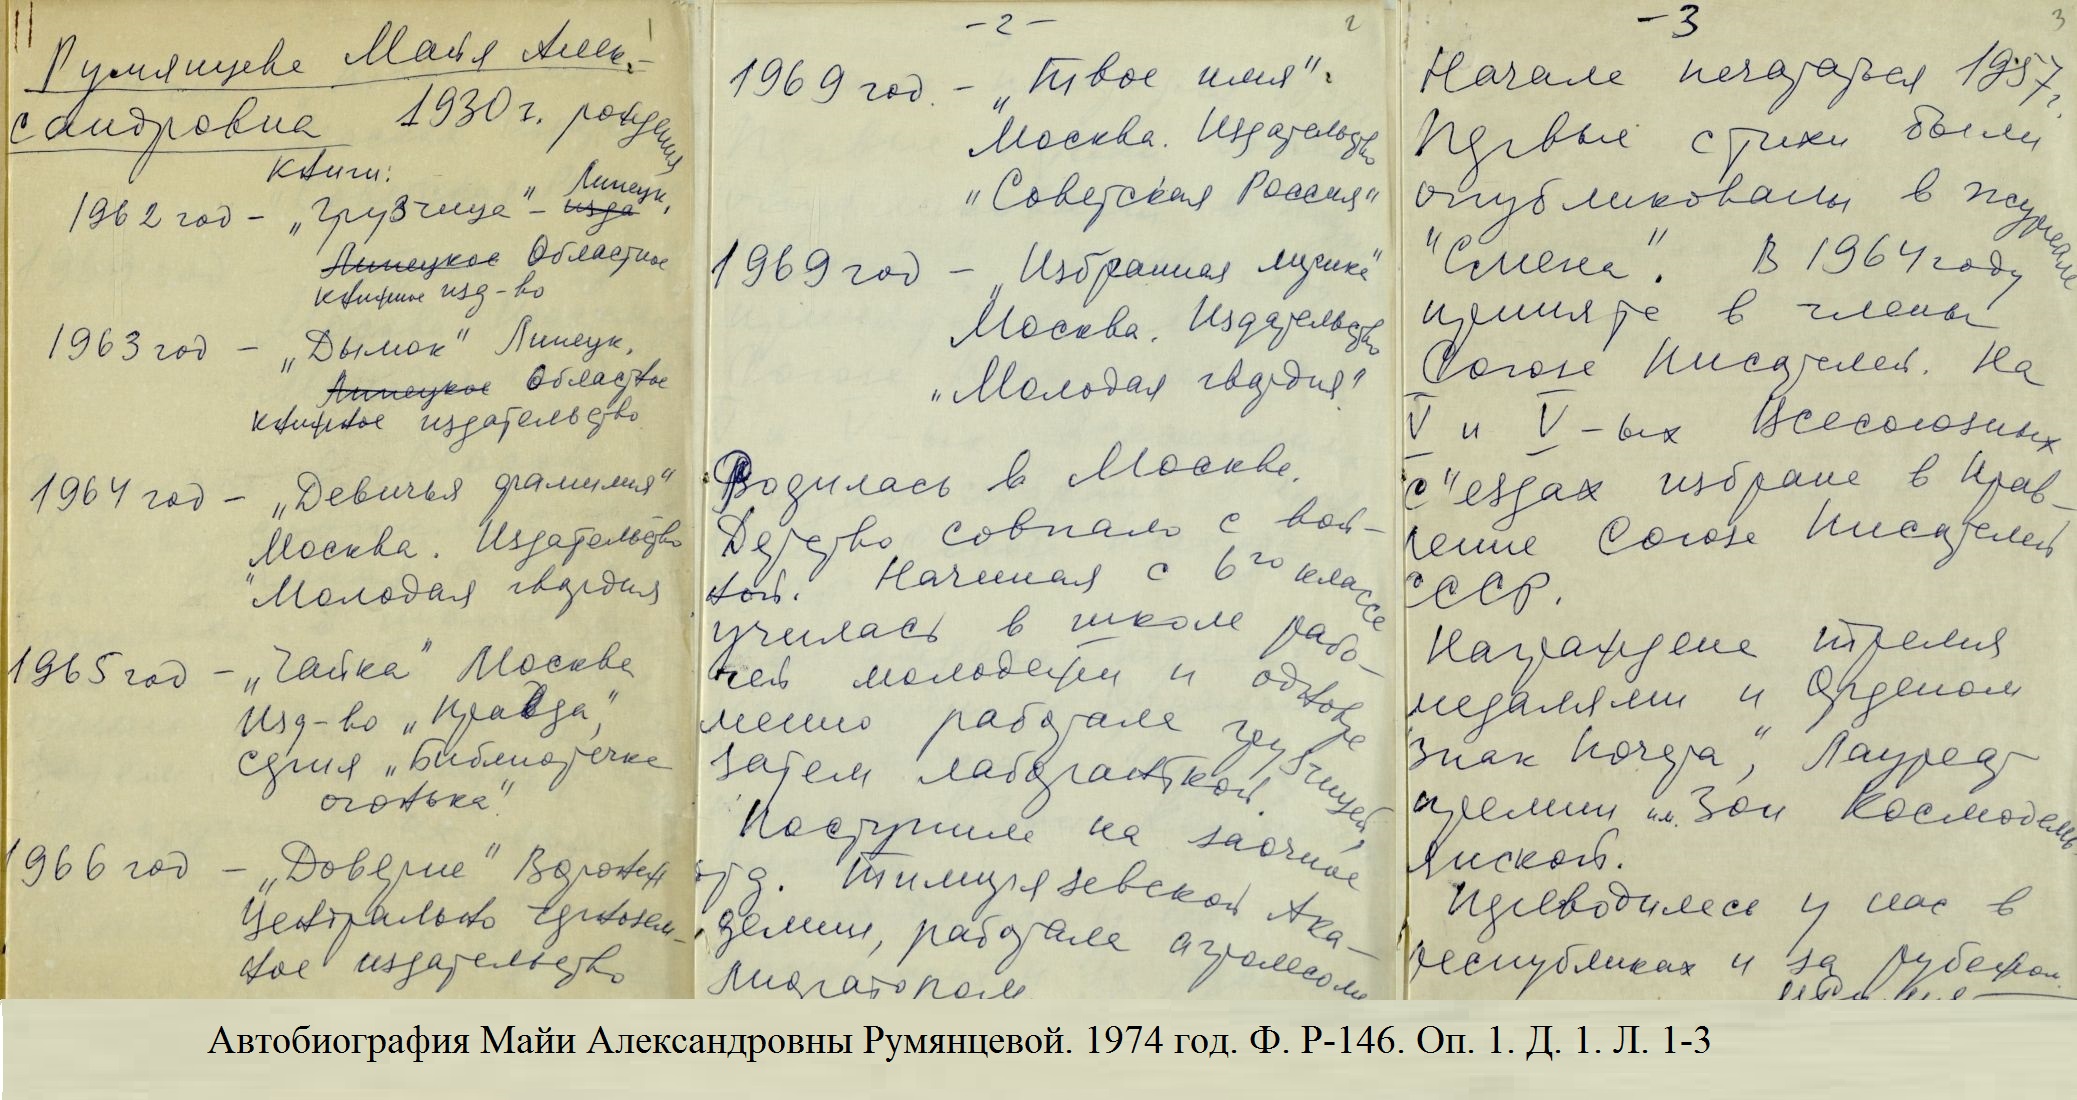 Румянцева Майя Алек-
сандровна 1930 г. рождения
Книги:
1962 год – „Грузчица“ – изда Липецк,
Липецкое Областное
книжное изд-во
1963 год – „Дымок“ Липецк.
Липецкое Областное
книжное издательство
1964 год – „Девичья фамилия“
Москва. Издательство
"Молодая гвардия
1965 год – „Чайка“ Москва
Изд-во „Правда“,
серия „Библиотечка
огонька“.
1966 год – „Доверие“ Воронеж
Центрально Чернозем-
ное издательство
- 2 -
2
1969 год. – „Твое имя“.
Москва. Издательство
"Советская Россия"
1969 год – „Избранная лирика“
Москва. Издательство
„Молодая гвардия“
Родилась в Москве.
Детство совпало с вой-
ной. Начиная с 6го класса
училась в школе рабо-
чей молодежи и одновре
менно работала грузчицей,
затем лаборанткой.
Поступила на заочное
отд. Тимирязевской Ака-
демии, работала агролесоме
лиоратором
- 3
3
Начала печататься 1957 г.
Первые стихи были
опубликованы в журнале
"Смена". В 1964 году
принята в члены
Союза Писателей. На
IV и V-ых Всесоюзных
с"ездах избрана в Прав-
ление Союза Писателей
СССР.
Награждена тремя
медалями и Орденом
Знак Почета", Лауреат
премии им. Зои Космодемь-
янской.
Переводилась у нас в
республиках и за рубежом.
Автобиография Майи Александровны Румянцевой. 1974 год. Ф. Р-146. Оп. 1. Д. 1. Л. 1-3